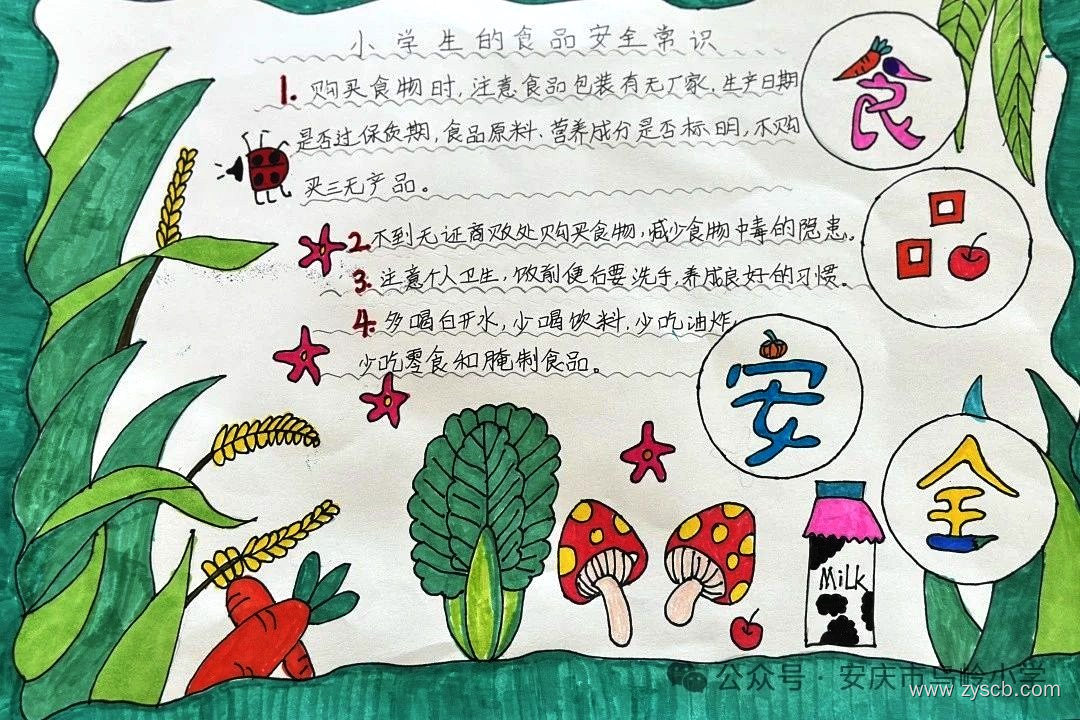 小学生的食品安全常识
1. 购买食物时,注意食品包装有无厂家,生产日期
是否过保质期,食品原料、营养成分是否标明,不购
买三无产品。
2.不到无证商贩处购买食物,减少食物中毒的隐患。
3.注意个人卫生,饭前便后要洗手,养成良好的习惯。
4.多喝白开水,少喝饮料,少吃油炸,
少吃零食和腌制食品。
食
品
安
全
Milk
公众号·安庆市马岭小学
www.zyscb.com